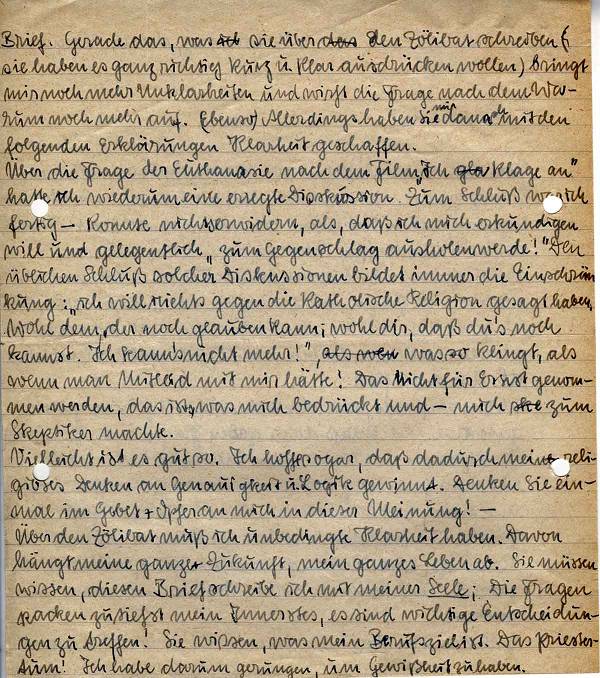 Brief. Gerade das, was ich sie über das den Zölibat schreiben (:
sie haben es ganz richtig kurz u. klar ausdrücken wollen) bringt
mir noch mehr Unklarheiten und wirft die Frage nach dem Wa-
rum noch mehr auf. (Ebenso) Allerdings haben Sie mir danach mit den
folgenden Erklärungen Klarheit geschaffen.
Über die Frage der Euthanasie nach dem Film „Ich gla Klage an"
hatte ich wiederum eine erregte Diskussion. Zum Schluß war ich
fertig – konnte nichts erwidern, als, daß ich mich erkundigen
will und gelegentlich „zum Gegenschlag ausholen werde!" Den
üblichen Schluß solcher Diskussionen bildet immer die Einschrän
kung: „ich will nichts gegen die Katholische Religion gesagt haben,
wohl dem, der noch glauben kann; wohl dir, daß du's noch
kannst. Ich kann's nicht mehr!", als wen was so klingt, als
wenn man Mitleid mit mir hätte! Das Nicht für Ernst genom-
men werden, das ist, was mich bedrückt und – mich ske zum
Skeptiker machte.
Vielleicht ist es gut so. Ich hoffe sogar, daß dadurch mein reli-
giöses Denken an Genauigkeit u. Logik gewinnt. Denken Sie ein-
mal im Gebet + Opfer an mich in dieser Meinung! –
Über den Zölibat muß ich unbedingte Klarheit haben. Davon
hängt meine ganze Zukunft, mein ganzes Leben ab. Sie müssen
wissen, diesen Brief schreibe ich mit meiner Seele; Die Fragen
packen zutiefst mein Innerstes, es sind wichtige Entscheidun-
gen zu treffen! Sie wissen, was mein Berufsziel ist. Das Priester-
tum! Ich habe darum gerungen, um Gewißheit zu haben.